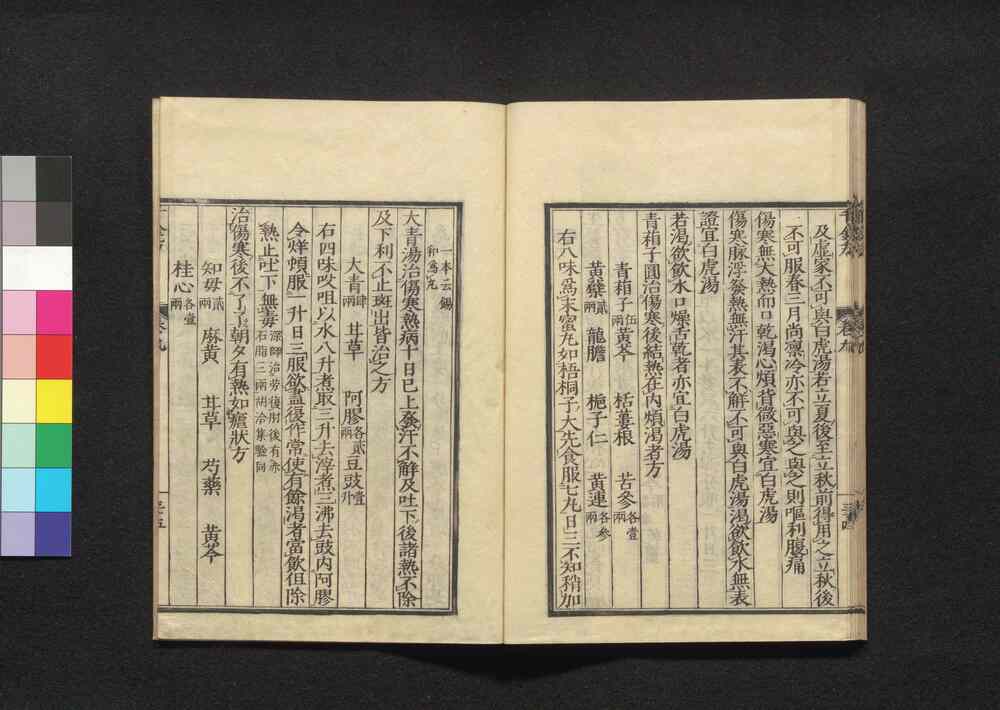 及虛家不可與白虎湯若立夏後至立秋前得用之立秋後
不可服春三月尚凛冷亦不可與之與之則嘔利腹痛
傷寒無大熱而口乾渴心煩背微惡寒宜白虎湯
傷寒脉浮發熱無汗其表不解不可與白虎湯渴欲飲水無表
證宜白虎湯
若渴欲飲水口燥舌乾者亦宜白虎湯
青葙子圓治傷寒後結熱在内煩渴者方
青葙子伍兩 黃芩 栝蔞根 苦參各壹兩
黃蘗貳兩 龍膽 梔子仁 黃連各參兩
右八味為末蜜丸如梧桐子大先食服七丸日三不知稍加
一本云錫和爲丸
大青湯治傷寒熱病十日已上發汗不解及吐下後諸熱不除
及下利不止斑出皆治之方
大青肆兩 甘草 阿膠各貳兩 豆豉壹升
右四味㕮咀以水八升煮取三升去滓煮三沸去豉内阿膠
令烊頓服一升日三服欲盡復作常使有餘渴者當飲但除
熱止吐下無毒深師治勞復用後有赤石脂三兩胡洽集驗同
治傷寒後不了了朝夕有熱如瘧狀方
知母貳兩 麻黃 甘草 芍藥 黃芩
桂心各壹兩